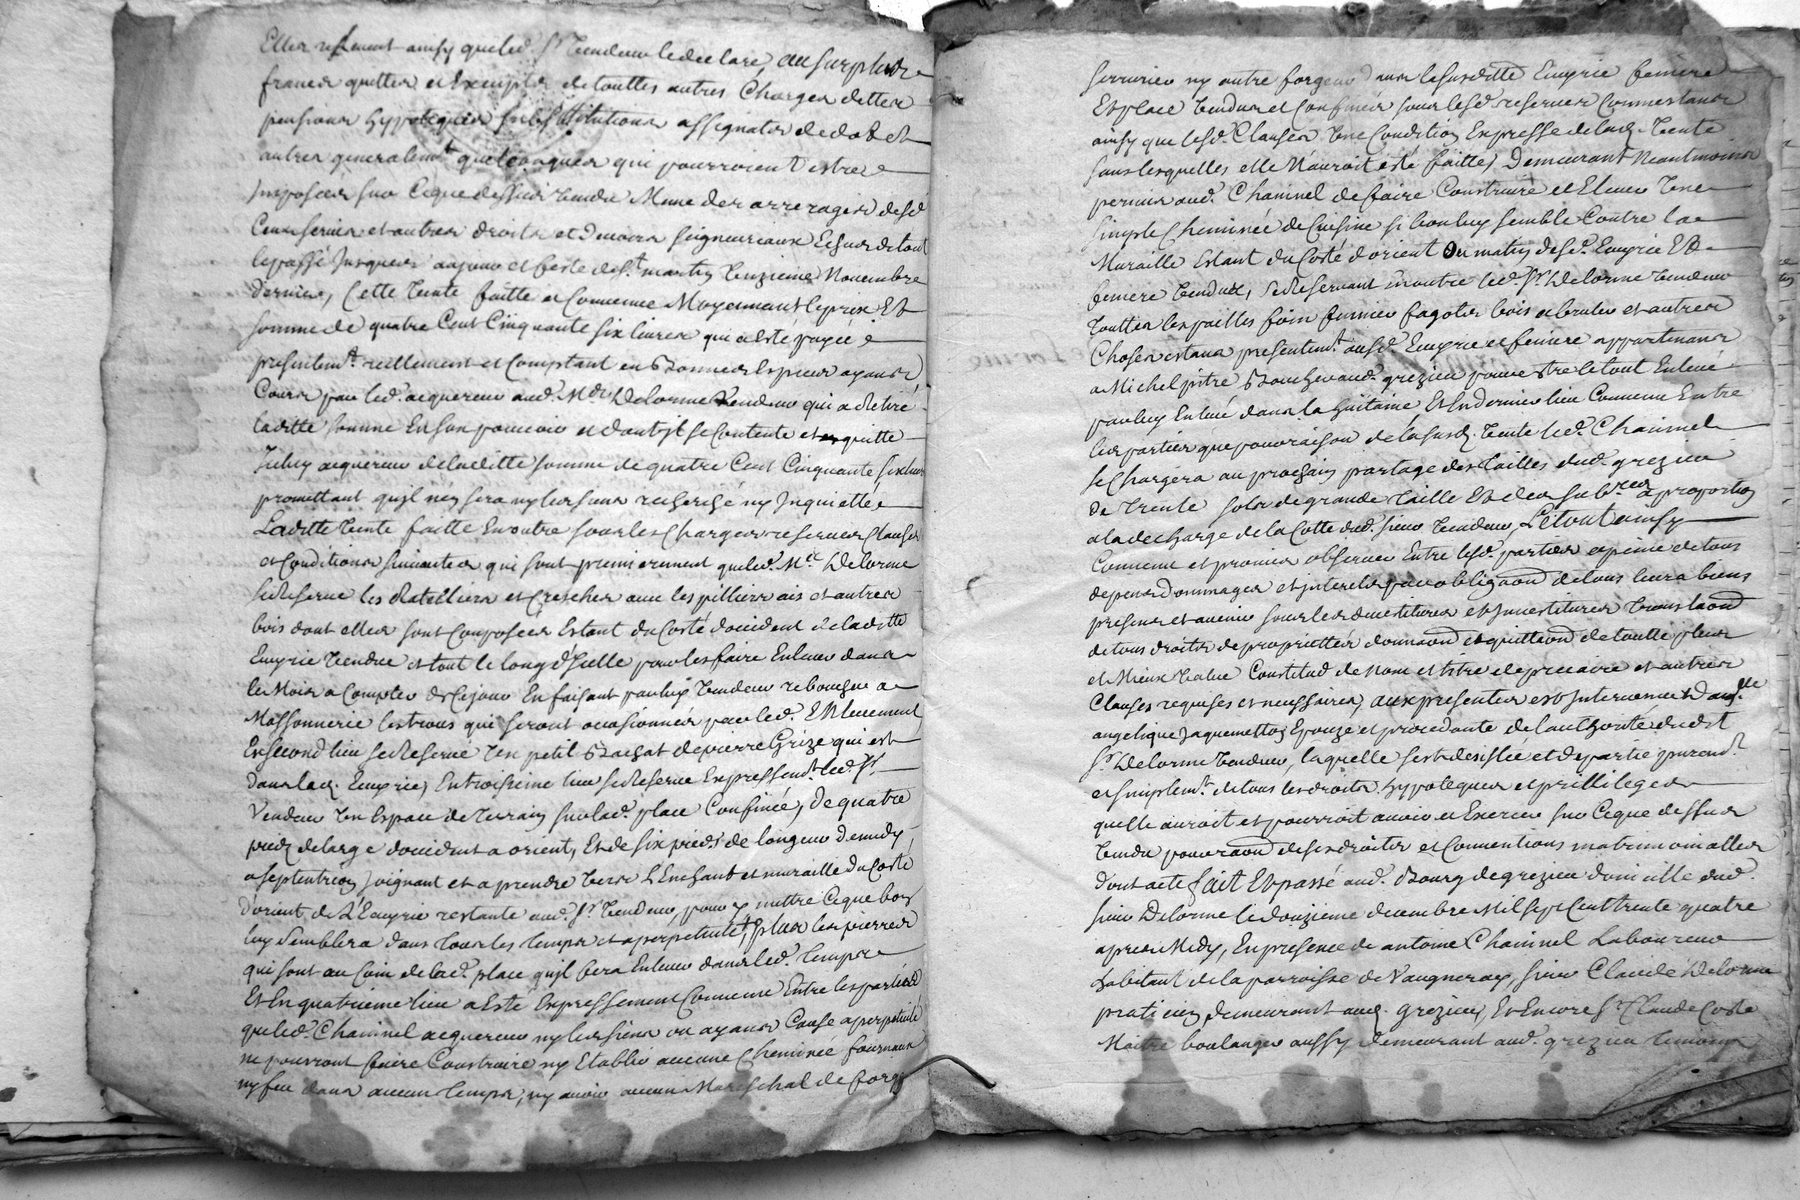 Elles relevent ainsy que led. Sr. Vendeur le declare, au surplus
francs quittes et Exempts de touttes autres Charges dettes
pensions hypoteques substitutions assignatos de dot et
autres generalemt. quelconques qui pourroient estre
Imposées sur Ceque dessus Vendu Mme des arrerages desd.
Cens servis et autres droits et devoirs seigneuriaux Echus de tout
le passé Jusques aujour et feste de St. martin Unzieme Novembre
dernier, Cette Vente faitte et Convenue Moyennant le prix Et
somme de quatre Cent Cinquante six livres qui a Esté payée
presentemt. reellement et Comptant en Bonnes Especes ayant
Cours par led. acquereur aud. Mre Delorme Vendeur qui a Retiré
laditte somme En son pouvoir et dont il se Contente et quitte
Iceluy acquereur de laditte somme de quatre Cent Cinquante six livres
promettant quil n'en sera ny les siens recherché ny Inquietté
Laditte Vente faitte En outre sous les Charges reserves Clauses
et Conditions suivantes qui sont premierement que led. Mre Delorme
se Reserve les Rateliers et Creches avec les pilliers ais et autres
bois dont elles sont Composées Estant du Costé doccident de laditte
Ecuyrie Vendue et tout le long d'Icelle pour les faire Enlever dans
le Mois a Compter de Ce jour En faisant par luy Vendeur reboucher a
Massonnerie les trous qui seront occasionnés par led. Enlevement
En second lieu se Reserve Un petit Bachat de pierre Grize qui est
dans lad. Ecuyrie, En troisieme lieu se Reserve Expressemt. led. Sr.
Vendeur Un Espace de Terrain sur lad. place Confinée, de quatre
pieds de large d'occident a orient, Et de six pieds de longueur de midy
a septentrion Joignant et a prendre Vers L'Enchant et muraille du Costé
d'orient de L'Ecuyrie restante aud. Sr. Vendeur pour y mettre Ceque bon
luy Semblera dans tous les temps et a perpetuité, plus les pierres
qui sont au Coin de lad. place quil fera Enlever dans led. temps
Et En quatrieme lieu a Esté Expressement Convenu Entre les parties
que led. Chaninel acquereur ny les siens ou ayans Cause a perpetuité
ne pourront faire Construire ny Etablir aucune Cheminée fourneaux
ny feu dans aucun temps, ny avoir aucun Mareschal de forge
serrurier ny autre forgeur dans la susditte Ecuyrie feniere
Et place Vendues et Confinées sous lesd. reserves Connestans
ainsy que lesd. Clauses Une Condition Expresse de lad. Vente
sans lesquelles elle N'auroit esté faitte, Demeurant Neantmoins
permis aud. Chaninel de faire Construire et Elever Une
simple Cheminée de Cuisine si bon luy semble Contre la
Muraille Estant du Costé d'orient Ou matin desd. Ecuyrie Et
feniere Vendues, se Reservant en outre led. Sr. Delorme Vendeur
touttes les pailles foin fumier fagots bois a bruler et autres
Choses estans presentemt. ausd. Ecuyrie et feniere appartenans
a Michel pitre Boucher aud. grezieu pour estre le tout Enlevé
par luy Enlevé dans la huitaine Et En dernier lieu Convenu Entre
les parties que pour raison de la susd. Vente led. Chaninel
se Chargera au prochain partage des tailles dud. grezieu
de trente sols de grande taille Et des subres. a proportion
a la decharge de la Cotte dud. sieur Vendeur, Le tout ainsy
Convenu et promis observer Entre lesd. parties a peine de tous
depens dommages et interets par obligaon. de tous leurs biens
presens et avenir sous les devestitures et Investitures translaon.
de tous droits de proprietté donnaon. et quittaon. de toutte plus
et Mieux Value Constitud de nom et titre de precaire et autres
Clauses requises et necessaires, aux presentes est Intervenue Dau.lle
angelique Jaquemetton Epouze et procedante de l'authorité dud.
Sr. Delorme Vendeur, laquelle s'est desistée et departie puremt.
et simplemt. de tous les droits hypoteques et privilleges
quelle auroit et pourroit avoir et Exercer sur Ceque dessus
Vendu pour raon. de ses droits et Conventions matrimonialles
dont acte fait Et passé aud. Bourg de grezieu domicille dud.
sieur Delorme le douzieme decembre Mil sept Cent trente quatre
apres Midy, En presence de antoine Chaninel Laboureur
habitant de la parroisse de Vaugneray, sieur Claude Delorme
praticien demeurant aud. grezieu, Et Encore Sr. Claude Coste
Maitre boulanger aussy demeurant aud. grezieu temoins